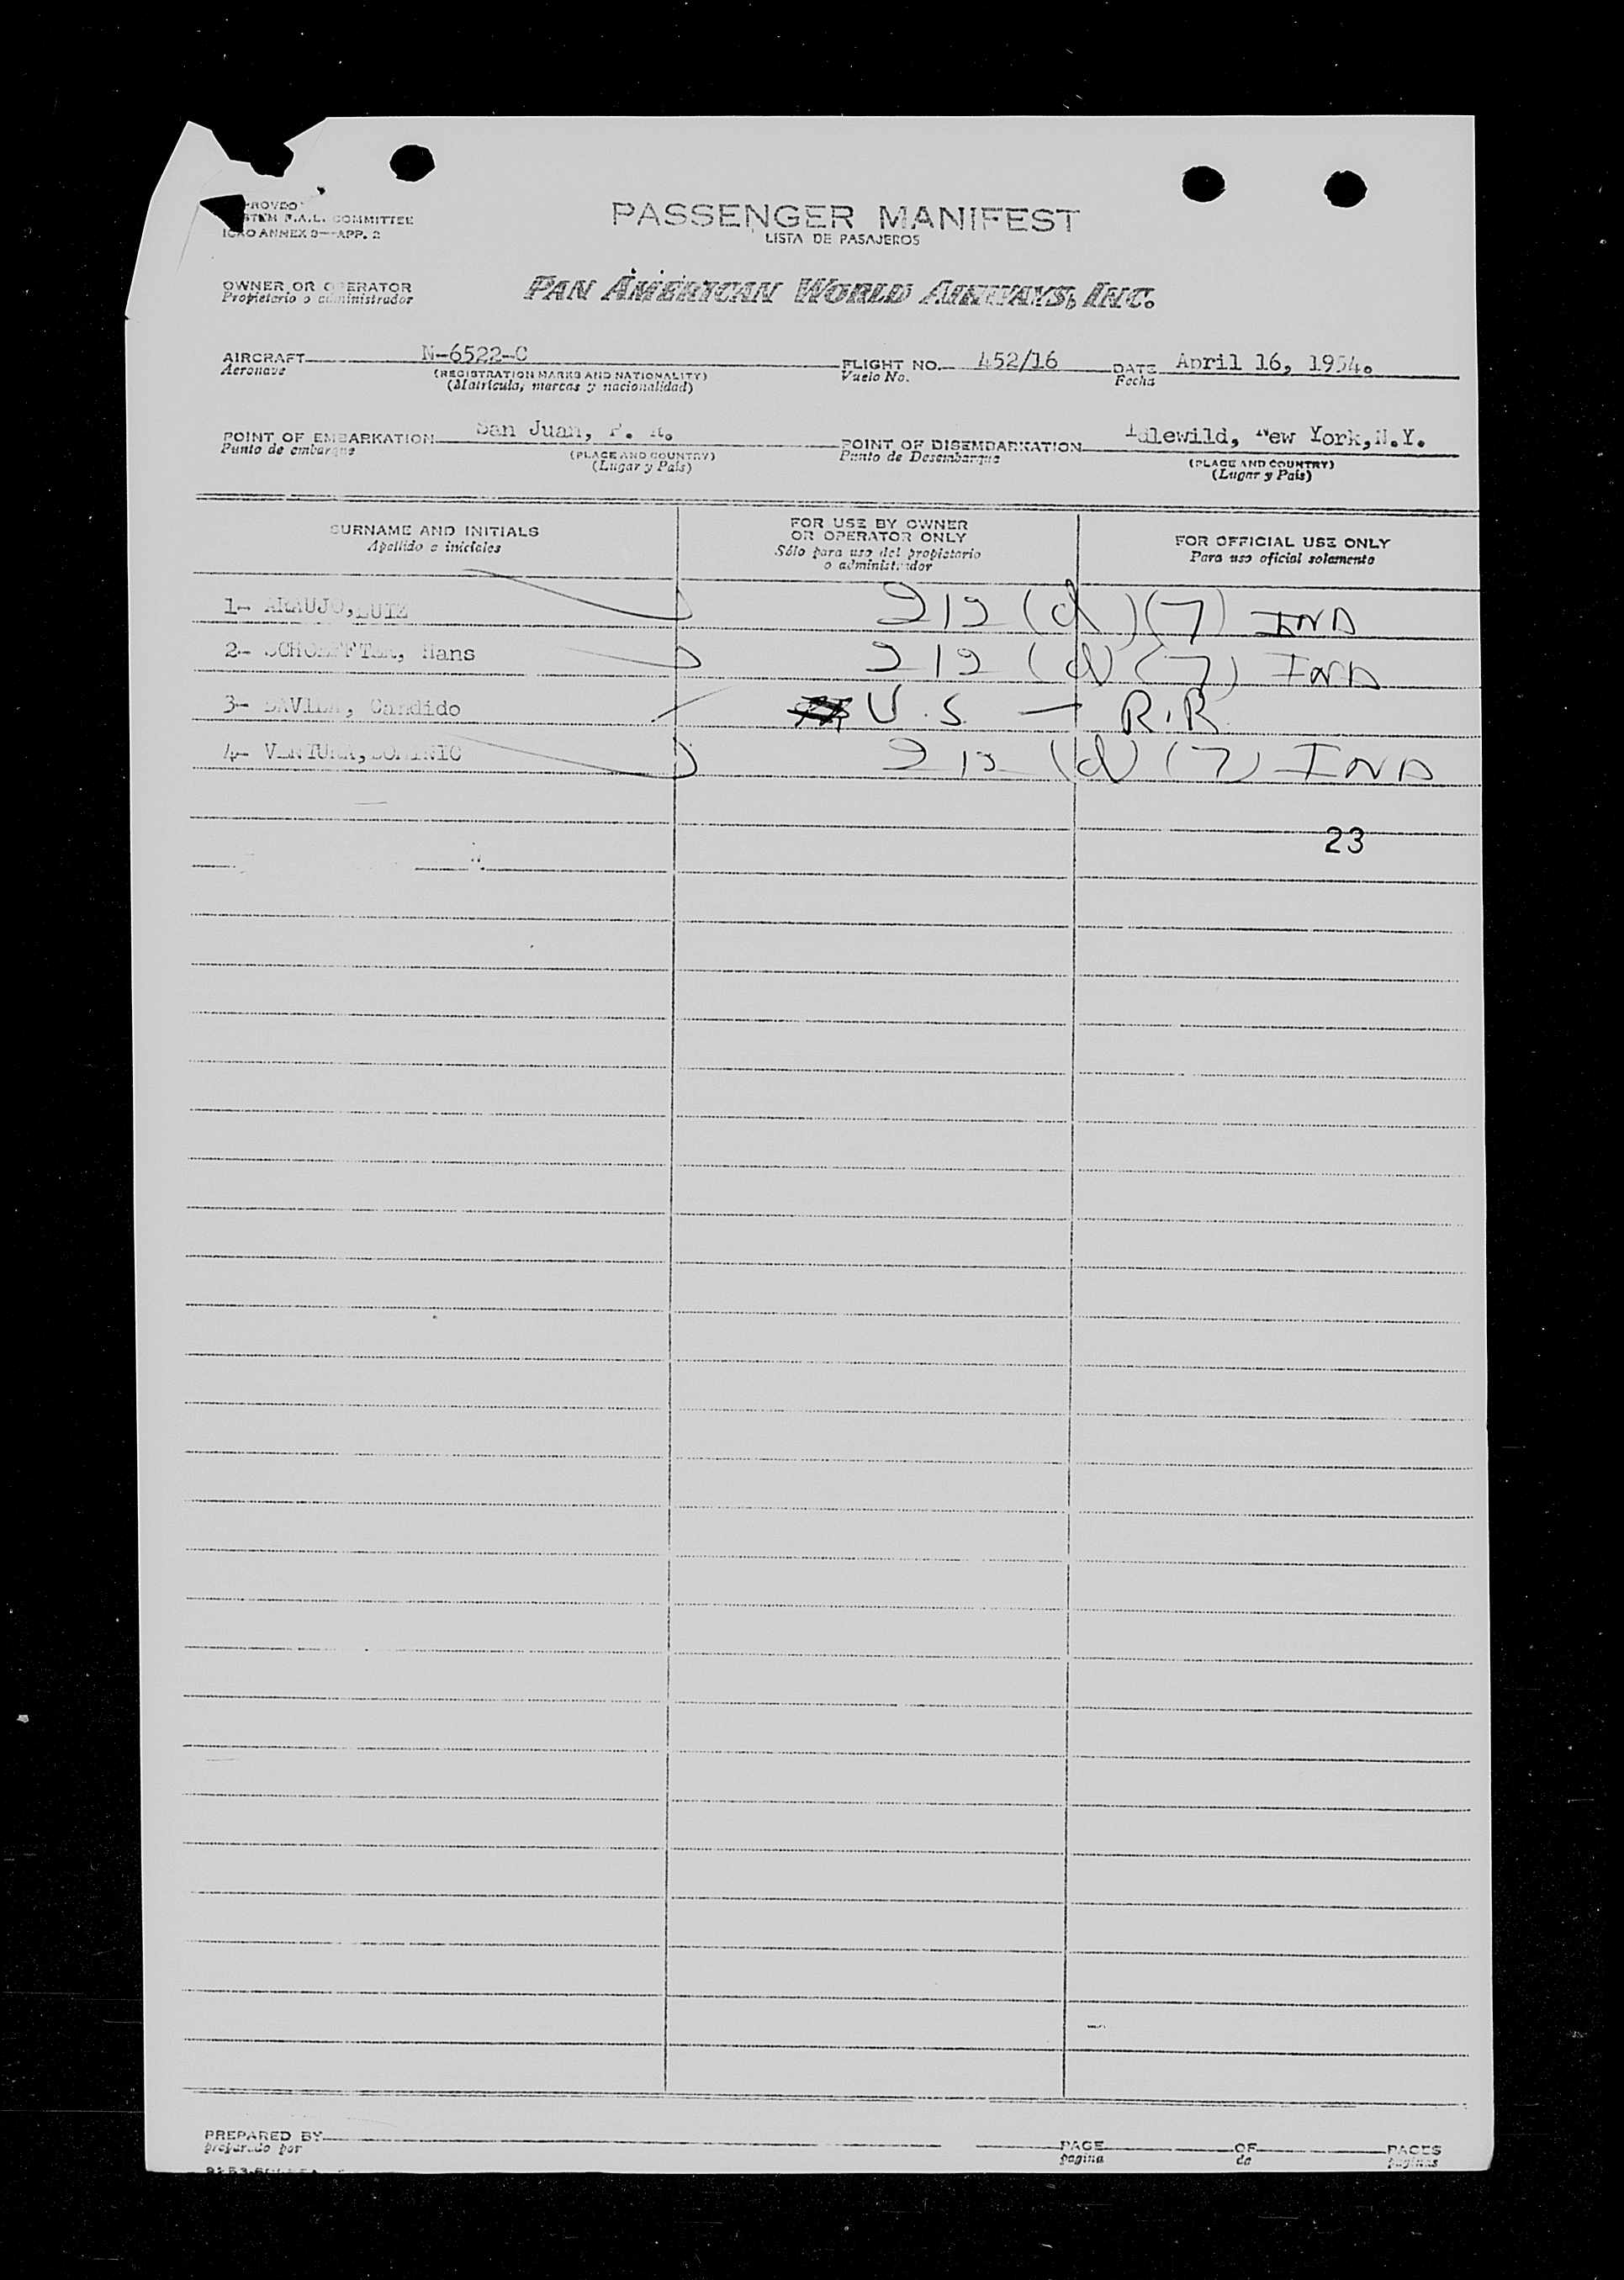 PASSENGER MANIFEST
LISTA DE PASAJEROS
COMMITTEE
ICAO ANNEX 9—APP. 2
OWNER OR OPERATOR
Propietario o administrador
PAN AMERICAN WORLD AIRWAYS, INC.
AIRCRAFT N-6522-C FLIGHT NO. 452/16 DATE April 16, 1954.
Aeronave (REGISTRATION MARKS AND NATIONALITY) Vuelo No. Fecha
(Matrícula, marcas y nacionalidad)
POINT OF EMBARKATION San Juan, P. R. POINT OF DISEMBARKATION Idlewild, New York, N.Y.
Punto de embarque (PLACE AND COUNTRY) Punto de Desembarque (PLACE AND COUNTRY)
(Lugar y País) (Lugar y País)
SURNAME AND INITIALS FOR USE BY OWNER OR OPERATOR ONLY FOR OFFICIAL USE ONLY
Apellido e iniciales Sólo para uso del propietario o administrador Para uso oficial solamente
1- ARAUJO, LUIZ 212 (d)(7) IND
2- Hans 212 (d)(7) IND
3- DAVILA, Candido U.S. — R.R.
4- VENTURA, DOMINIC 212 (d)(7) IND
23
PREPARED BY PAGE OF PAGES
preparado por pagina de paginas